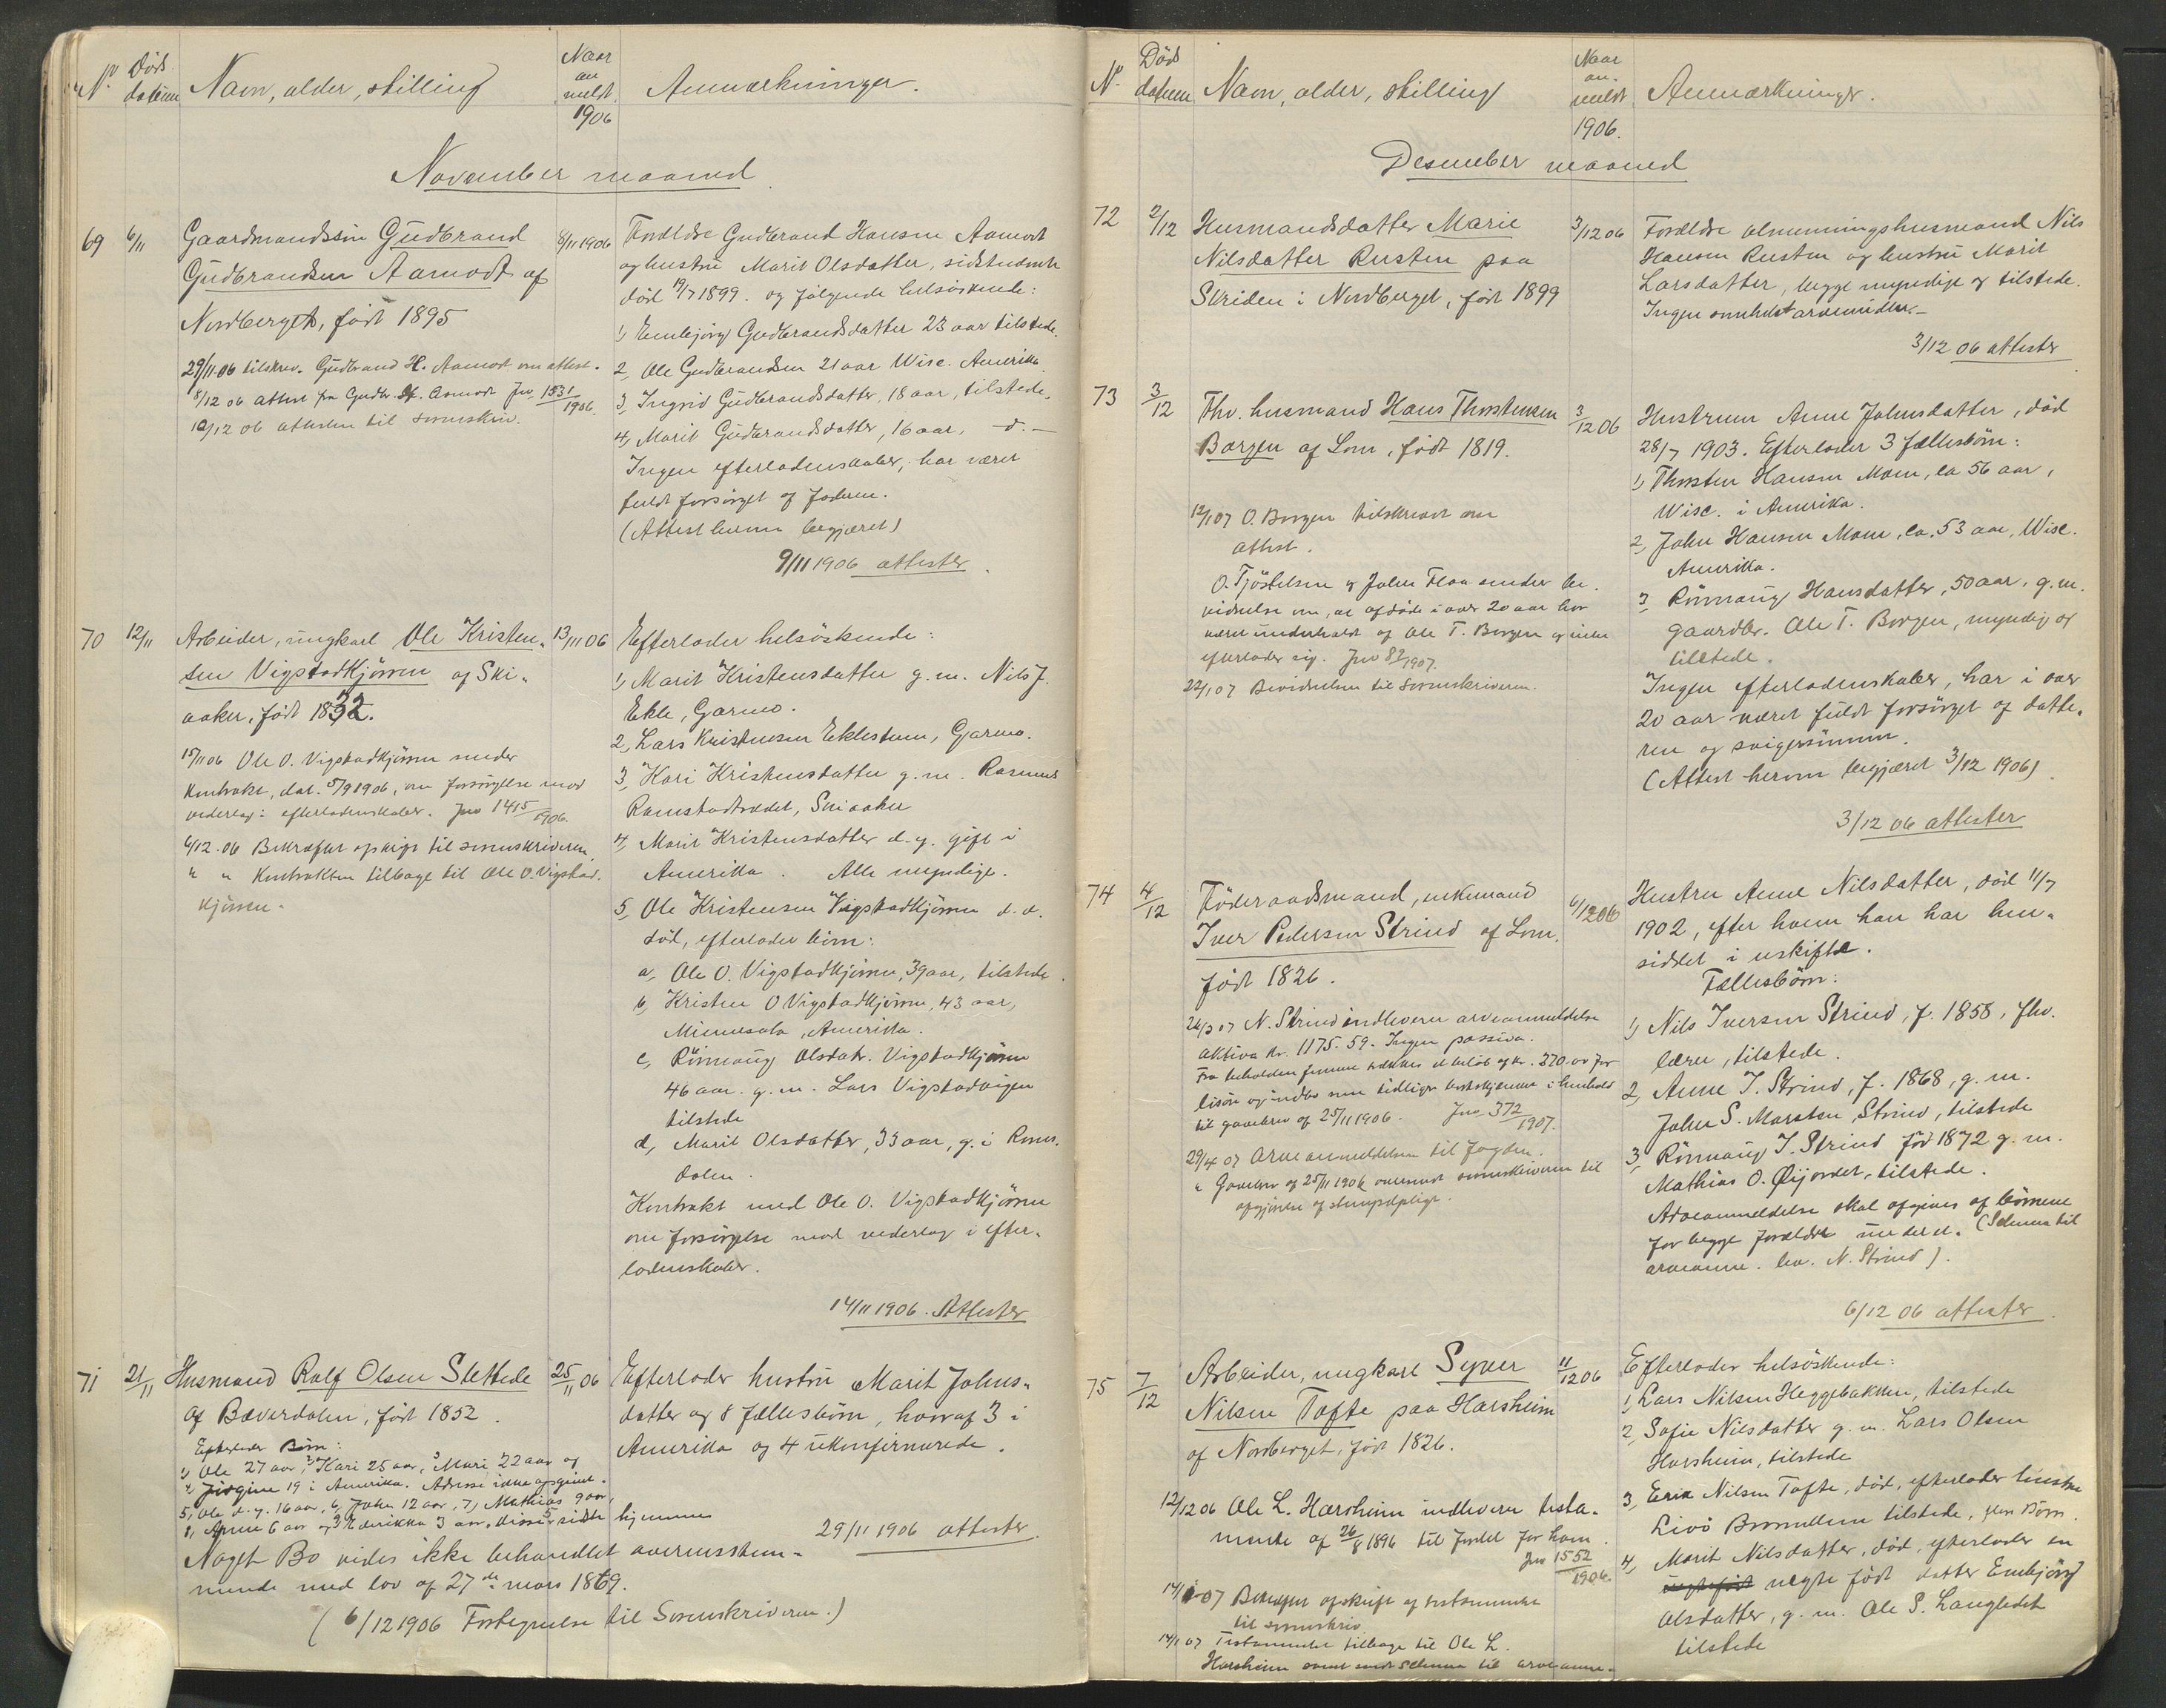 No. Döds datum Navn, alder, stilling Naar anmeldt 1906 Anmærkninger.
November maaned.
69 6/11 Gaardmandssön Gudbrand 8/11 1906
Gudbrandsen Aamodt af
Nordberget, född 1895
29/11 06 tilskrev. Gudbrand H. Aamodt om attest.
8/12 06 attest fra Gudbr. H. Aamodt Jno 1531/1906.
10/12 06 attesten til sorenskriv.
Forældre Gudbrand Hansen Aamodt
og hustru Marit Olsdatter, sidstnævnte
död 19/7 1899. og fölgende helsöskende:
1, Embjörg Gudbrandsdatter 23 aar tilstede.
2, Ole Gudbrandsen 21 aar Wisc. Amerika.
3, Ingrid Gudbrandsdatter, 18 aar, tilstede.
4, Marit Gudbrandsdatter, 16 aar, -d.-
Ingen efterladenskaber, har været
fuldt forsörget af faderen.
(Attest herom begjæret)
9/11 1906 attester.
70 12/11 Arbeider, ungkarl Ole Kristen- 13/11 06
sen Vigstadkjörren af Ski-
aaker, född 1832.
15/11 06 Ole O. Vigstadkjörren sender
Kontrakt, dat. 5/9 1906, om forsörgelse mod
vederlag i efterladenskaber. Jno 1415/1906.
6/12. 06 Bekræftet afskrift til sorenskriveren
" " Kontrakten tilbage til Ole O. Vigstad-
kjörren.
Efterlader helsöskende:
1, Marit Kristensdatter g. m. Nils J.
Ekle, Garmo.
2, Lars Kristensen Eklestuen, Garmo.
3, Kari Kristensdatter g. m. Rasmus
Ramstadtrædet, Skiaaker
4, Marit Kristensdatter d. y. gift i
Amerika. Alle myndige.
5, Ole Kristensen Vigstadkjörren d. æ.
död, efterlader börn:
a, Ole O. Vigstadkjörren, 39 aar, tilstede.
b, Kristen O Vigstadkjörren, 43 aar,
Minnesota, Amerika.
c, Rönnaug Olsdatr. Vigstadkjörren
46 aar. g. m. Lars Vigstadvigen
tilstede
d, Marit Olsdatter, 33 aar, g. i Roms-
dalen.
Kontrakt med Ole O. Vigstadkjörren
om forsörgelse mod vederlag i efter-
ladenskaber.
14/11 1906. Attester
71 21/11 Husmand Rolf Olsen Slettede 25/11 06
af Bæverdalen, född 1852.
Efterlader Börn:
1, Ole 27 aar, 2, Kari 25 aar, 3, Mari 22 aar og
4, Jörgine 19 i Amerika. Adresse ikke opgivet.
5, Ole d. y. 16 aar, 6, John 12 aar, 7, Mathias 9 aar,
8, Anne 6 aar og 9, Edvikka 3 aar, disse 5 sidste hjemme
Noget Bo vides ikke behandlet overensstem-
mende med lov af 27de mars 1869.
(6/12 1906 Fortegnelse til Sorenskriveren.)
Efterlader hustru Marit Johns-
datter og 8 fællesbörn, hvoraf 3 i
Amerika og 4 ukonfirmerede.
29/11 1906 attester.
No. Döds datum Navn, alder, stilling Naar an- meldt 1906. Anmærkninger.
Desember maaned
72 2/12 Husmandsdatter Marie 3/12 06
Nilsdatter Rusten paa
Skriden i Nordberget, född 1899
Forældre almenningshusmand Nils
Hansen Rusten og hustru Marit
Larsdatter, begge myndige og tilstede.
Ingen somhelst arvemidler.-
3/12 06 attester
73 3/12 Fhv. husmand Hans Thorstensen 3/12 06
Borgen af Lom, född 1819.
12/1 07 O. Borgen tilskrevet om
attest.
O. Tjöstelsen og John Flaa sender be-
vidnelse om, at afdöde i over 20 aar har
været underholdt af Ole T. Borgen og intet
efterlader sig. Jno 82/1907.
22/1 07 Bevidnelsen til Sorenskriveren.
Hustruen Anne Johnsdatter, död
28/7 1903. Efterlader 3 fællesbörn:
1, Thorsten Hansen Moen, ca 56 aar,
Wisc. i Amerika.
2, John Hansen Moen, ca. 53 aar, Wisc.
Amerika.
3, Rönnaug Hansdatter, 50 aar, g. m.
gaardbr. Ole T. Borgen, myndig og
tilstede.
Ingen efterladenskaber, har i over
20 aar været fuldt forsörget af datte-
ren og svigersönnen.
(Attest herom begjæret 3/12 1906)
3/12 06 attester
74 4/12 Föderaadsmand, enkemand 6/12 06
Iver Pedersen Strind af Lom.
född 1826.
26/3 07 N. Strind indleverer arveanmeldelse
aktiva kr. 1175.59. Ingen passiva.
til gavebrev af 25/11 1906. Jno 372/1907.
29/4 07 Arveanmeldelsen til fogden.
" Gavebrev af 25/11 1906 oversendt sorenskriveren til
afgjörelse af stempelpligt.
Hustru Anne Nilsdatter, död 11/7
1902, efter hvem han har hen-
siddet i uskifte.
Fællesbörn:
1, Nils Iversen Strind, f. 1858, fhv.
lærer, tilstede.
2, Anne I. Strind, f. 1868, g. m.
John S. Marsten Strind, tilstede
3, Rönnaug I. Strind född 1872 g. m.
Mathias O. Öijordet, tilstede.
Arveanmeldelse skal afgives af börnene
for begge forældre under et. (Schema til
arveanm. lev. N. Strind).
6/12 06 attester.
75 7/12 Arbeider, ungkarl Syver 11/12 06
Nilsen Tofte paa Harsheim
af Norberget, född 1826.
12/12 06 Ole L. Harsheim indleverer testa-
mente af 26/8 1896 til fordel for ham.
Jno 1552/1906.
14/1 07 Bekræftet afskrift af testamentet
til sorenskriv.
14/1 07 Testamentet tilbage til Ole L.
Harsheim samt sendt schema til arveanm.
Efterlader helsöskende:
1, Lars Nilsen Heggebakken, tilstede
2, Sofie Nilsdatter g. m. Lars Olsen
Harsheim, tilstede
3, Erik Nilsen Tofte, död, efterlader hustru
Livö tilstede, flere Börn.
4, Marit Nilsdatter, död, efterlader en
uægte född datter Embjörg
Olsdatter, g. m. Ole S. Langledet
tilstede